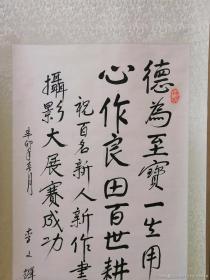 德為至寶一生用
心作良田百世耕
祝百名新人新作書
攝影大展賽成功
辛卯年
李文